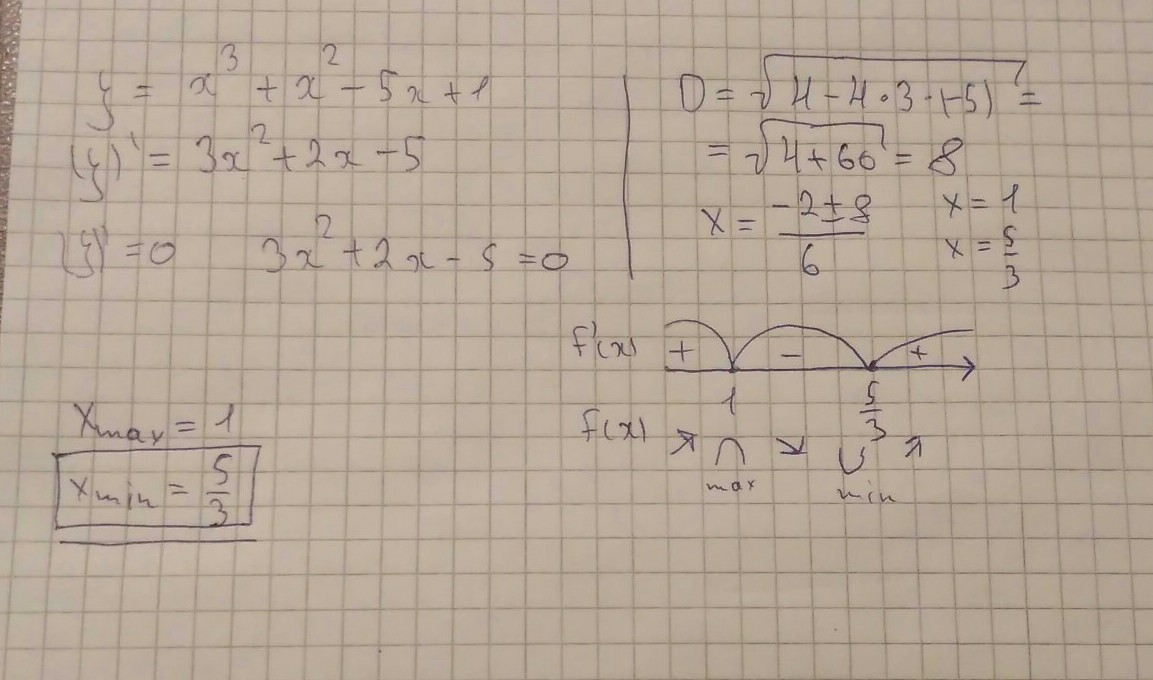 y = x³ + x² - 5x + 1
(y)' = 3x² + 2x - 5
(y)' = 0 3x² + 2x - 5 = 0
D = √(4 - 4·3·(-5)) =
= √(4 + 60) = 8
x = (-2 ± 8)/6
x = 1
x = 5/3
f'(x) + - +
1 5/3
f(x) ↗ ∩ ↘ ∪ ↗
max min
Xmax = 1
Xmin = 5/3